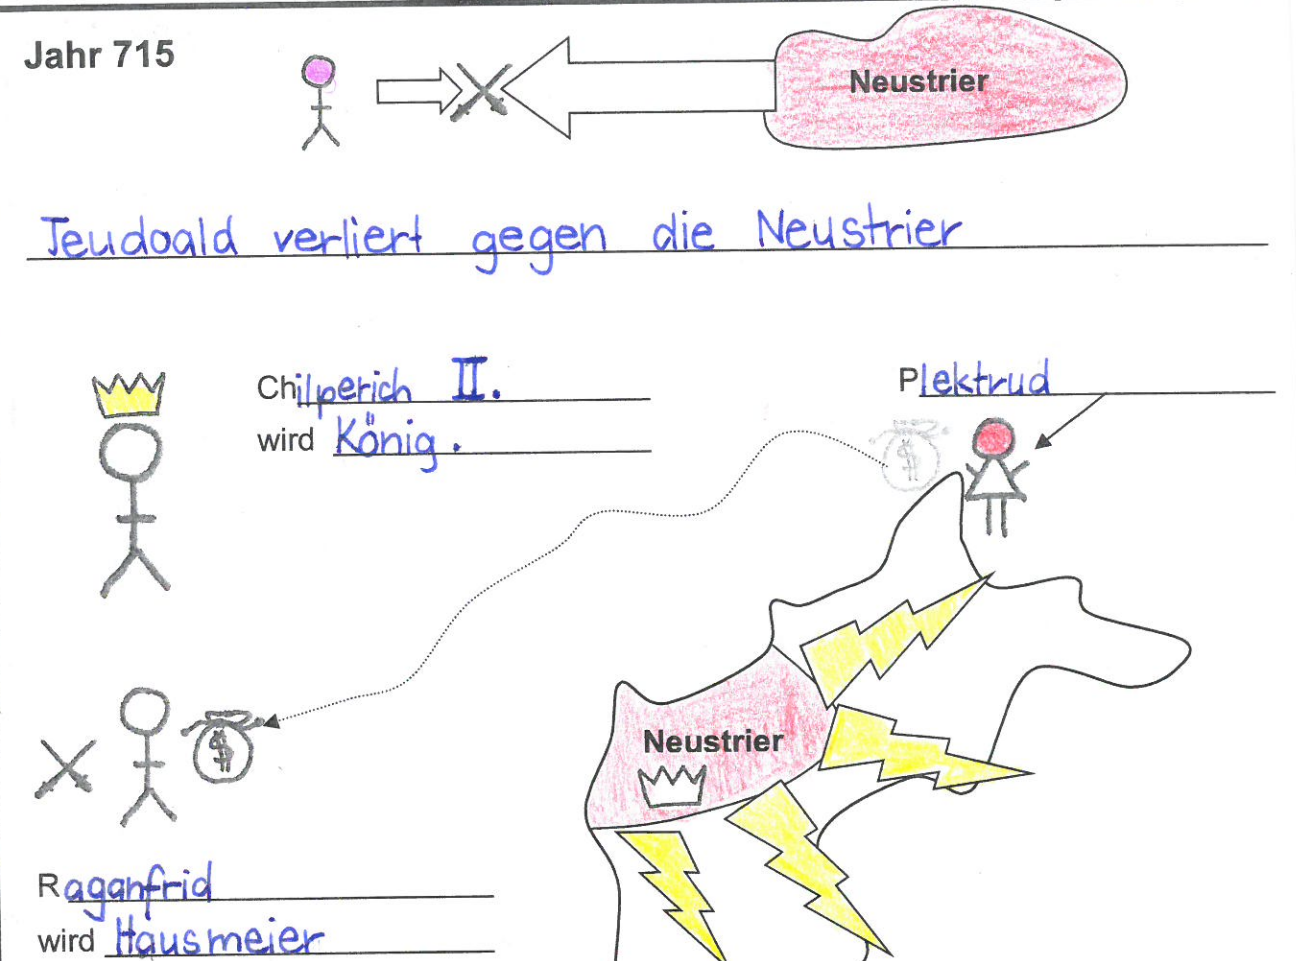 Jahr 715
Neustrier
Teudoald verliert gegen die Neustrier
Chilperich II.
wird König.
Plektrud
$
Neustrier
$
Raganfrid
wird Hausmeier